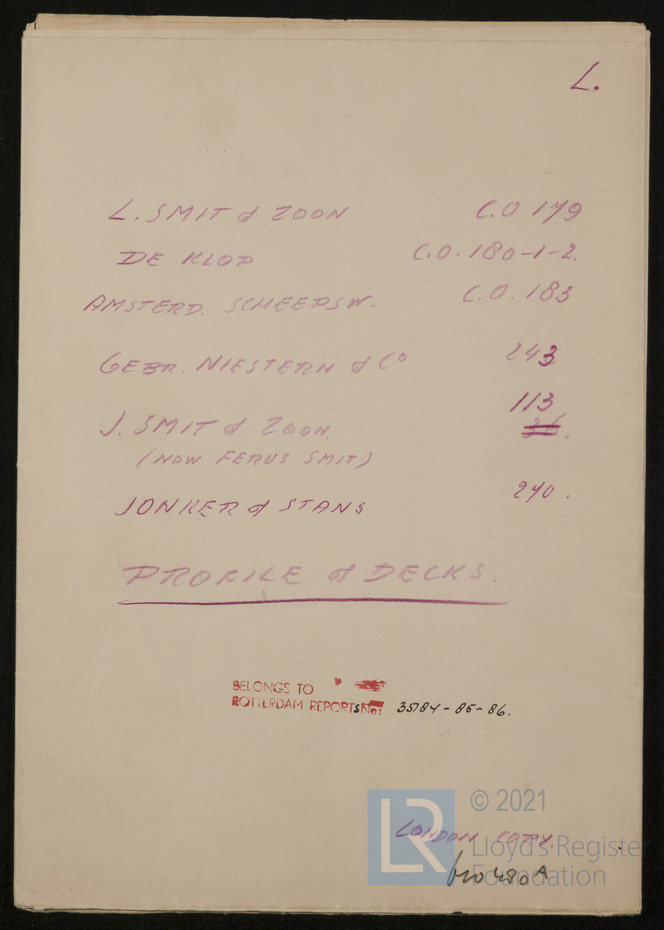 L.
L. SMIT & ZOON C.O. 179
DE KLOP C.O. 180-1-2.
AMSTERD. SCHEEPSW. C.O. 183
GEBR. NIESTERN & CO 243
113
J. SMIT & ZOON.
(NOW FERUS SMIT)
JONKER & STANS 240.
PROFILE & DECKS.
BELONGS TO
ROTTERDAM REPORTS No: 35784-85-86.
© 2021
LONDON COPY.
LR Lloyd's Register
Foundation